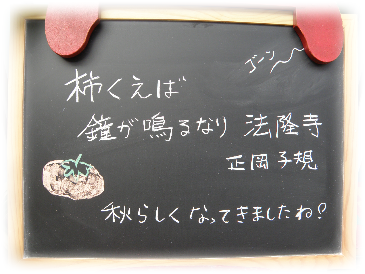 ゴーン
柿くえば
鐘が鳴るなり 法隆寺
正岡子規
秋らしくなってきましたね?